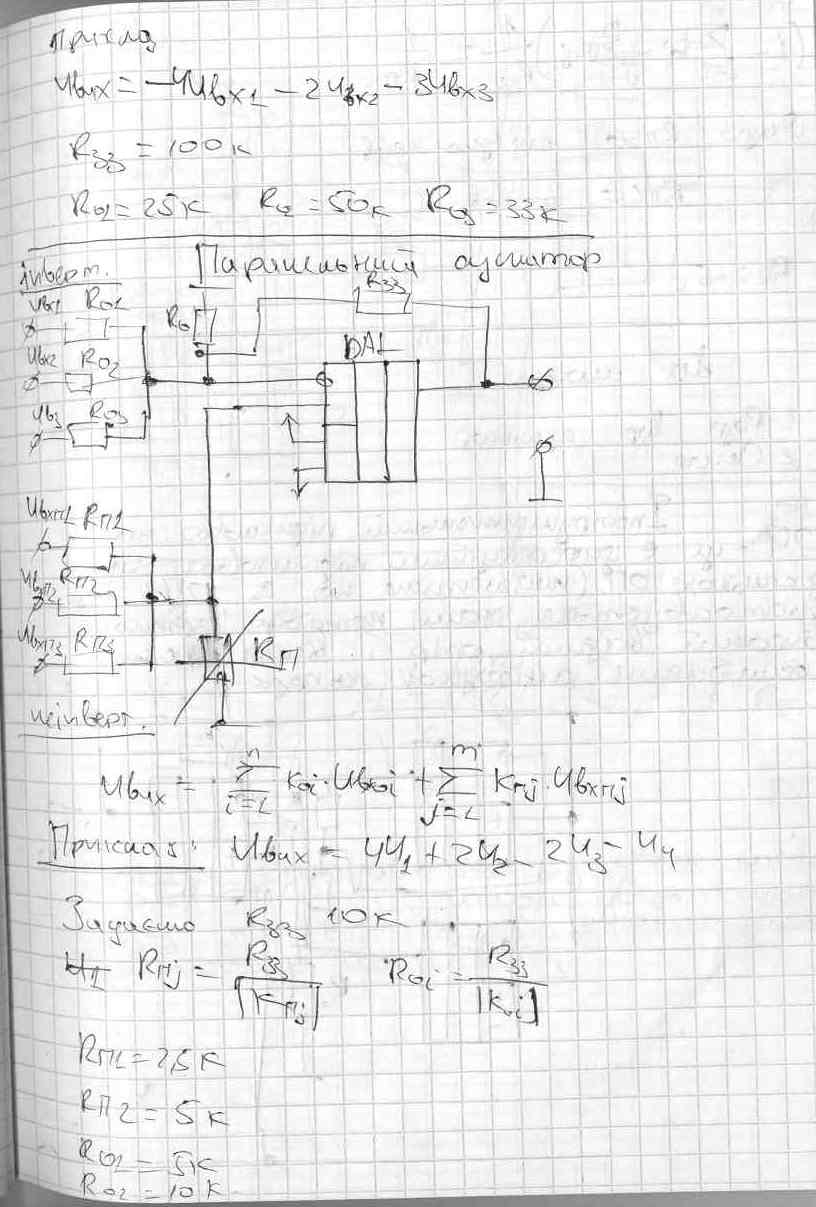 Приклад
Uвих = -4Uвх1 - 2Uвх2 - 3Uвх3
Rзз = 100к
R01 = 25к R02 = 50к R03 = 33к
Інверт. Паралельний суматор
Uвх1 R01 R0 Rзз
Uвх2 R02 DA1
Uв3 R03
Uвхп1 Rп1
Uвп2 Rп2
Uвхп3 Rп3 Rп
неінверт.
Uвих = n∑i=1 K0i · Uвх0i + m∑j=1 Kпj · Uвхпj
Приклад: Uвих = 4U1 + 2U2 - 2U3 - U4
Задаємо Rзз 10к
Rпj = Rзз / |Kпj| R0i = Rзз / |K0i|
Rп1 = 2,5к
Rп2 = 5к
R01 = 5к
R02 = 10к